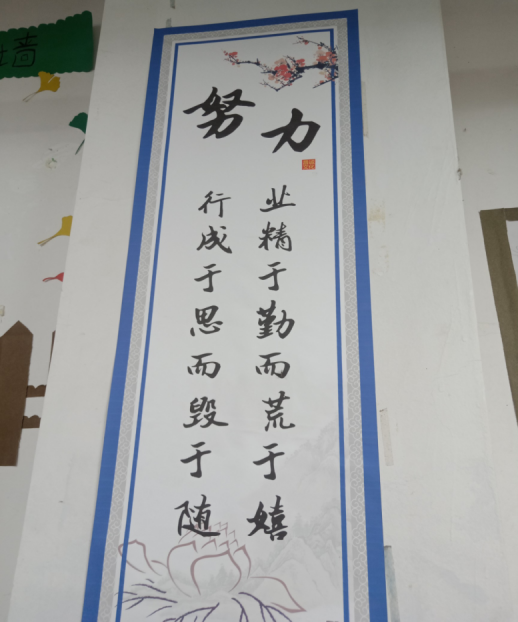 努力
业精于勤而荒于嬉
行成于思而毁于随
墙